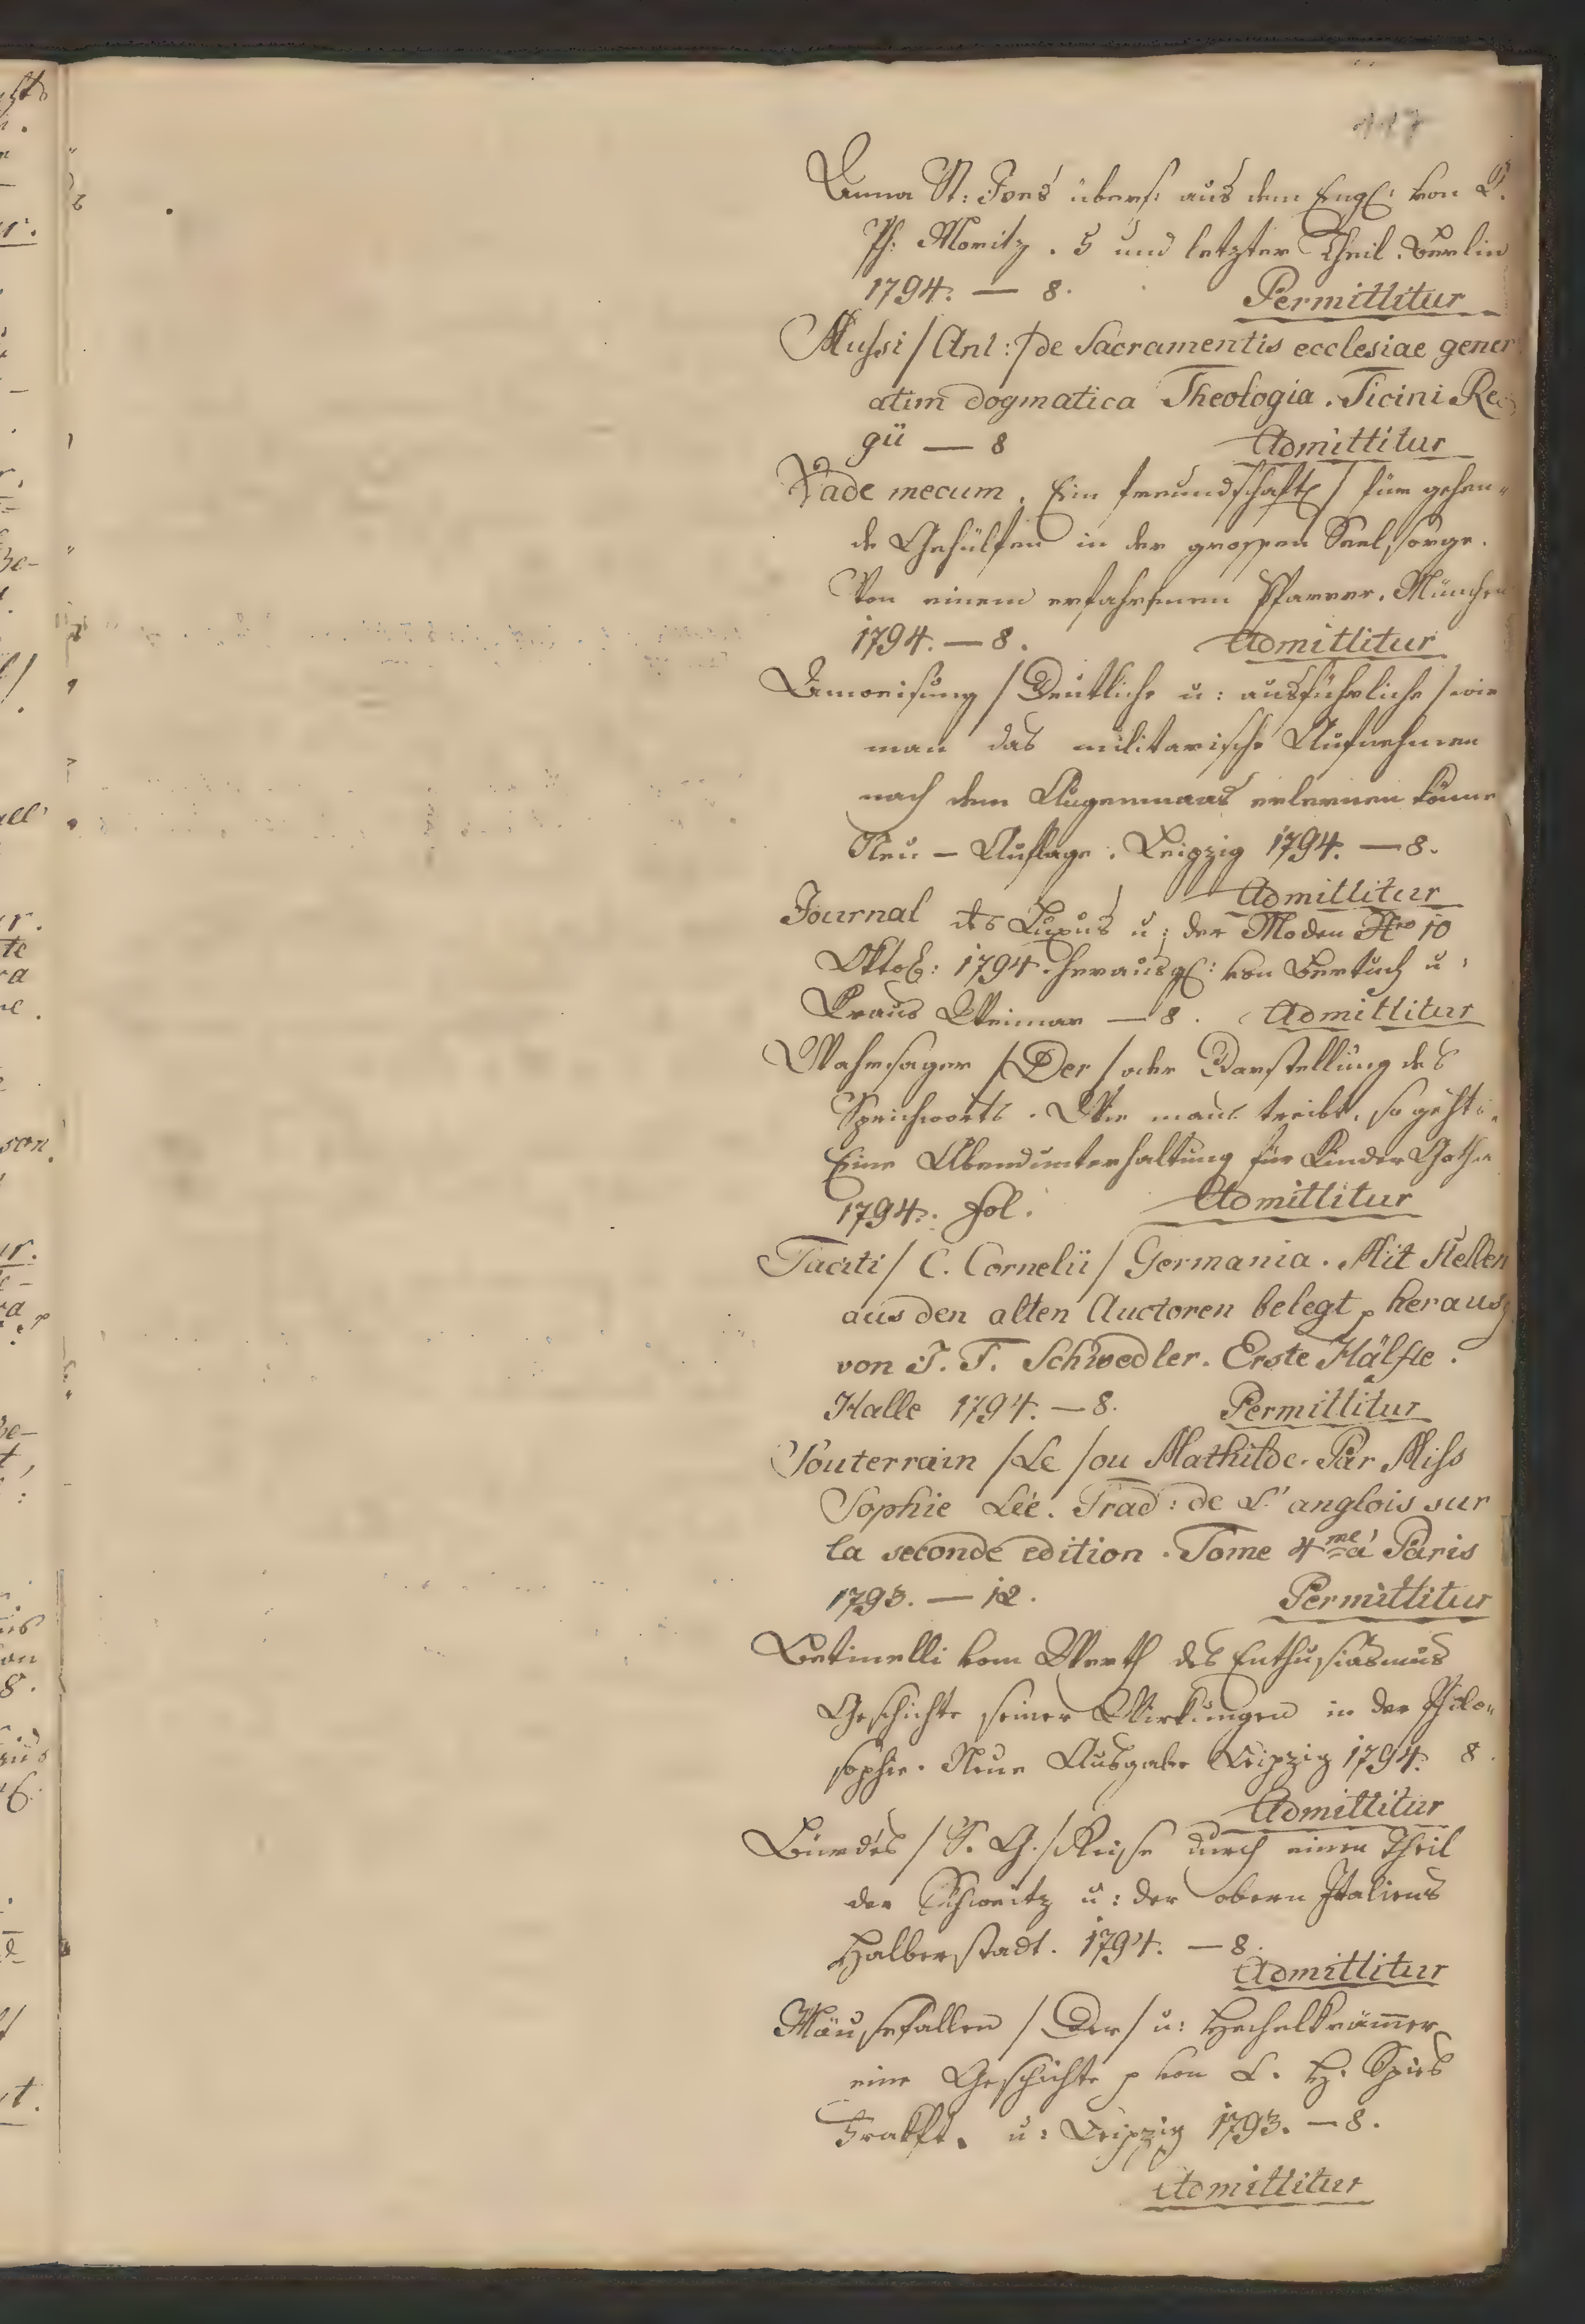 117
Anna St: Ives übers: aus dem Engl: von K.
Ph: Moritz. 5 und letzter Theil. Berlin
1794. — 8. Permittitur
Mussi / Ant: / de Sacramentis ecclesiae gener
atim dogmatica Theologia. Ticini Re
gii — 8 Admittitur
Vade mecum. Ein freundschaftl / für gehen„
de Gehülfen in der grossen Seel,sorge.
Von einem erfahrnen Pfarrer. München
1794. — 8. Admittitur
Anweisung / Deutliche u: ausführliche / wie
man das militarische Aufnehmen
nach dem Augenmaas erlernen könne
Neu — Auflage. Leipzig 1794. — 8.
Admittitur
Journal des Luxus u: der Moden Nro 10
Oktob: 1794. herausg: von Bertuch u:
Kraus Weimar — 8. Admittitur
Wahrsager / Der / oder Darstellung des
Sprichworts. Wie mans treibt, so gehts.
Eine Abendunterhaltung für Kinder Gotha
1794. fol. Admittitur
Taciti / C. Cornelii / Germania. Mit Stellen
aus den alten Auctoren belegt, herausg
von J. T. Schwedler. Erste Hälfte.
Halle 1794. — 8. Permittitur
Souterrain / Le / ou Mathilde. Par Miss
Sophie Lée. Trad: de L' anglois sur
la seconde edition. Tome 4me à Paris
1793. — 12. Permittitur
Betinelli vom Werth des Enthusiasmus
Geschichte seiner Wirkungen in der Philo„
sophie. Neue Ausgabe Leipzig 1794. 8.
Admittitur
Bürdes / S. G. / Reise durch einen Theil
der Schweitz u: der obern Italiens
Halberstadt. 1794. — 8.
Admittitur
Mäusefallen / Der / u: Hechelkrämer
eine Geschichte p von C. H. Spies
Frakft. u: Leipzig 1793. — 8.
Admittitur